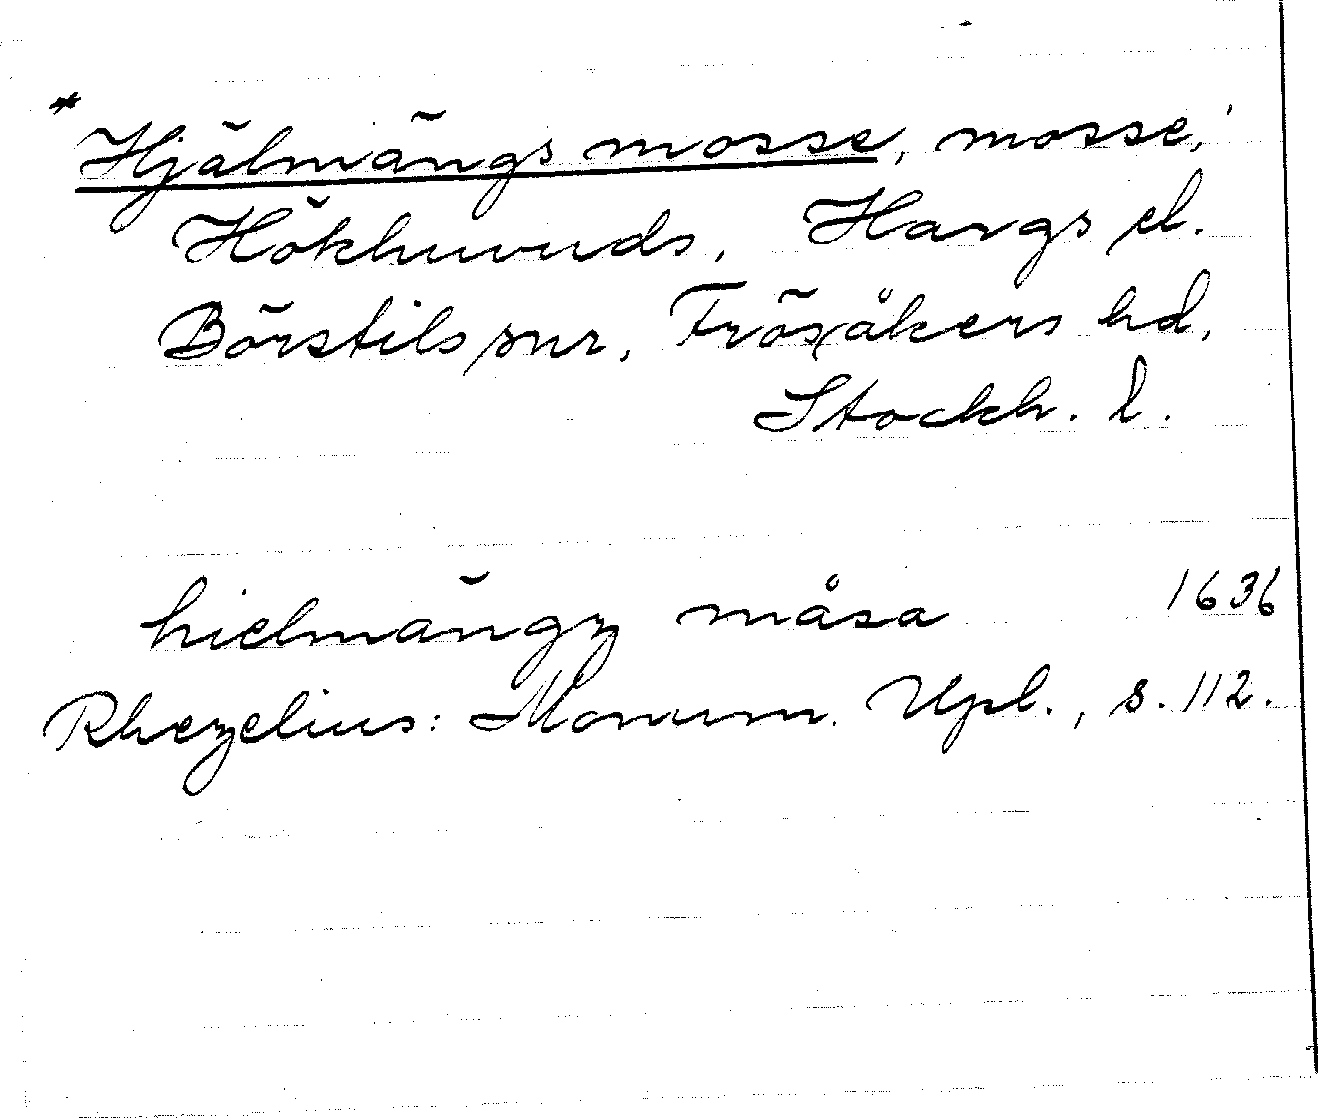 * Hjälmängs mosse, mosse,
Hökhuvuds, Hargs el.
Börstils snr, Frösåkers hd,
Stockh. l.
hielmängz måsa 1636
Rhezelius: Monum. Upl., s. 112.